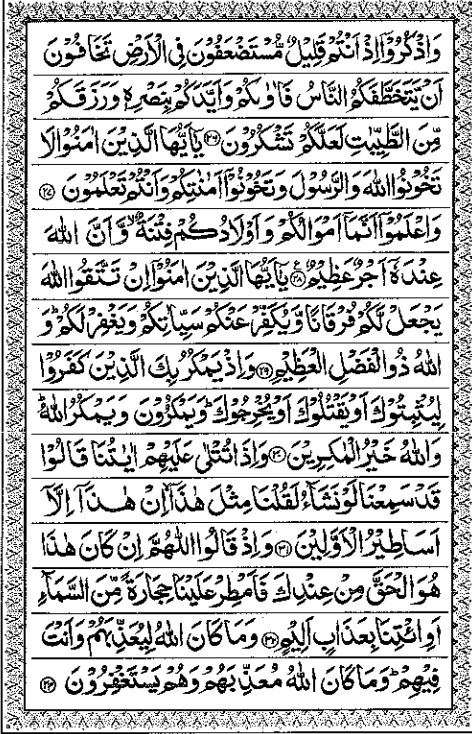 وَاذْكُرُوْٓا اِذْ اَنْتُمْ قَلِيْلٌ مُّسْتَضْعَفُوْنَ فِى الْاَرْضِ تَخَافُوْنَ
اَنْ يَّتَخَطَّفَكُمُ النَّاسُ فَاٰوٰىكُمْ وَاَيَّدَكُمْ بِنَصْرِهٖ وَرَزَقَكُمْ
مِّنَ الطَّيِّبٰتِ لَعَلَّكُمْ تَشْكُرُوْنَ ﴿۲۶﴾ يٰٓاَيُّهَا الَّذِيْنَ اٰمَنُوْا لَا
تَخُوْنُوا اللّٰهَ وَالرَّسُوْلَ وَتَخُوْنُوْٓا اَمٰنٰتِكُمْ وَاَنْتُمْ تَعْلَمُوْنَ ﴿۲۷﴾
وَاعْلَمُوْٓا اَنَّمَآ اَمْوَالُكُمْ وَاَوْلَادُكُمْ فِتْنَةٌ ۙ وَّاَنَّ اللّٰهَ
عِنْدَهٗٓ اَجْرٌ عَظِيْمٌ ﴿۲۸﴾ يٰٓاَيُّهَا الَّذِيْنَ اٰمَنُوْٓا اِنْ تَتَّقُوا اللّٰهَ
يَجْعَلْ لَّكُمْ فُرْقَانًا وَّيُكَفِّرْ عَنْكُمْ سَيِّاٰتِكُمْ وَيَغْفِرْ لَكُمْ ؕ وَ
اللّٰهُ ذُو الْفَضْلِ الْعَظِيْمِ ﴿۲۹﴾ وَاِذْ يَمْكُرُ بِكَ الَّذِيْنَ كَفَرُوْا
لِيُثْبِتُوْكَ اَوْ يَقْتُلُوْكَ اَوْ يُخْرِجُوْكَ ؕ وَيَمْكُرُوْنَ وَيَمْكُرُ اللّٰهُ ؕ
وَاللّٰهُ خَيْرُ الْمٰكِرِيْنَ ﴿۳۰﴾ وَاِذَا تُتْلٰى عَلَيْهِمْ اٰيٰتُنَا قَالُوْا
قَدْ سَمِعْنَا لَوْ نَشَآءُ لَقُلْنَا مِثْلَ هٰذَآ ۙ اِنْ هٰذَآ اِلَّآ
اَسَاطِيْرُ الْاَوَّلِيْنَ ﴿۳۱﴾ وَاِذْ قَالُوا اللّٰهُمَّ اِنْ كَانَ هٰذَا
هُوَ الْحَقَّ مِنْ عِنْدِكَ فَاَمْطِرْ عَلَيْنَا حِجَارَةً مِّنَ السَّمَآءِ
اَوِ ائْتِنَا بِعَذَابٍ اَلِيْمٍ ﴿۳۲﴾ وَمَا كَانَ اللّٰهُ لِيُعَذِّبَهُمْ وَاَنْتَ
فِيْهِمْ ؕ وَمَا كَانَ اللّٰهُ مُعَذِّبَهُمْ وَهُمْ يَسْتَغْفِرُوْنَ ﴿۳۳﴾